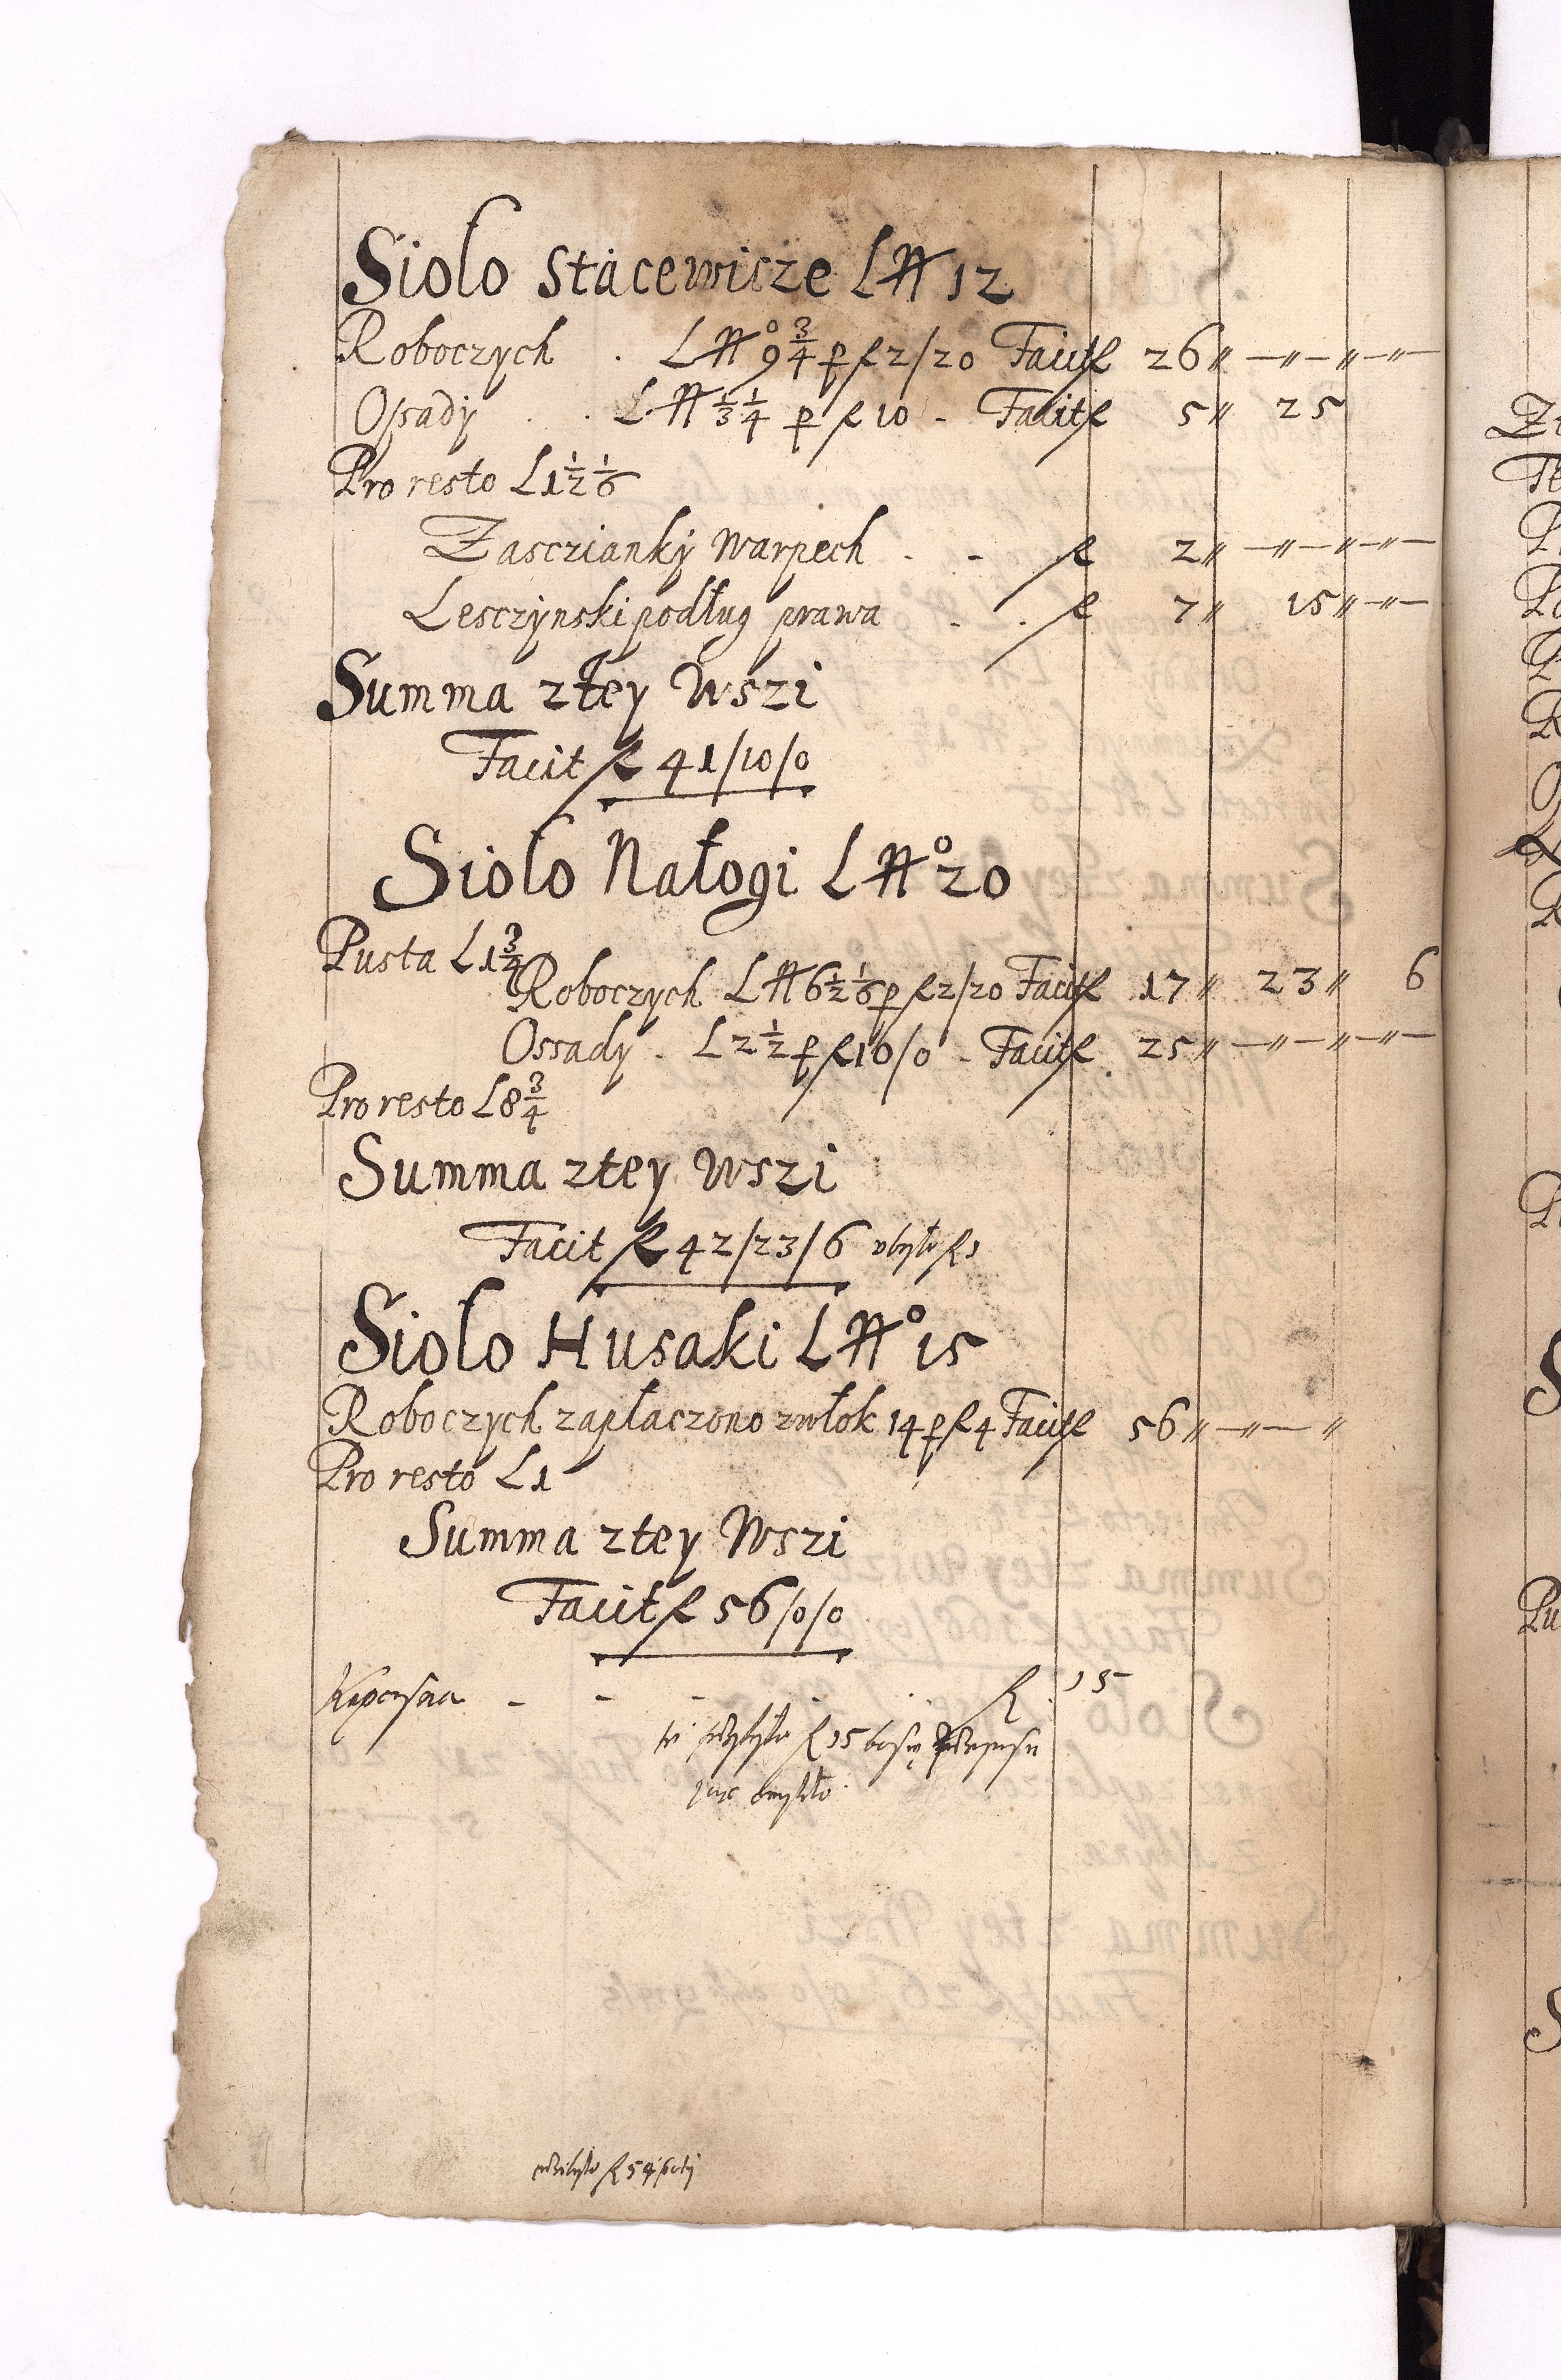 Sioło Stacewicze L No 12
Roboczych . L No 9 3/4 p fl 2/20 Facit fl 26 〃 —〃—〃—〃—
Ossady . . L No 1/3 1/4 p fl 10 - Facit fl 5 〃 25
Pro resto L 1 1/2 1/6
Zasczianky Warpech . - fl 2 〃 —〃—〃—〃—
Lesczynski podług prawa - . fl 7 〃 15 〃—〃—
Summa ztey Wszi
Facit fl 41/10/0
Sioło Nałogi L No 20
Pusta L 1 3/4
Roboczych L No 6 1/2 1/6 p fl 2/20 Facit fl 17 〃 23 〃 6
Ossady - L 2 1/2 p fl 10/0 - Facit fl 25 〃 —〃—〃—〃—
Pro resto L 8 3/4
Summa ztey Wszi
Facit fl 42/23/6 ubyło fl 1
Sioło Husaki L No 15
Roboczych zapłaczono zwłok 14 p fl 4 Facit fl 56 〃 —〃— 〃
Pro resto L 1
Summa ztey Wszi
Facit fl 56/0/0
- - - . . fl . 15
przybyło fl 15
fl 54